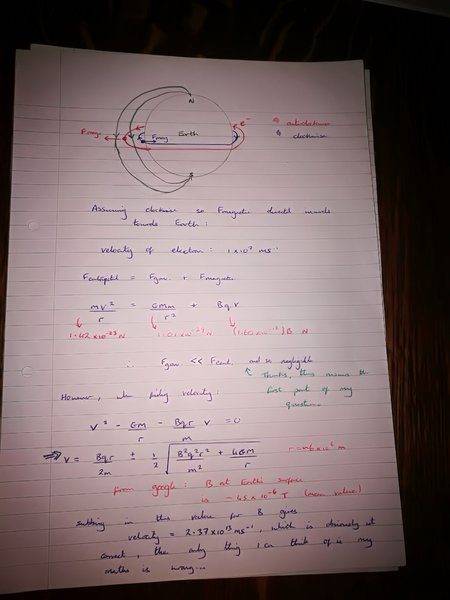 N
Fmag.
Fmag
Earth
e⁻
anticlockwise
clockwise
S
Assuming clockwise so Fmagnetic directed inwards
towards Earth:
velocity of electron: 1×10⁷ ms⁻¹
Fcentripetal = Fgrav. + Fmagnetic
mv²/r = GMm/r² + Bqv
1.42×10⁻²³ N
(1.60×10⁻¹²)B N
∴ Fgrav << Fcent. and so negligible
Thanks, this means the
first part of my
question..
However, when finding velocity:
v² - GM/r - Bqr/m v = 0
⇒ v = Bqr/2m ± 1/2 √(B²q²r²/m² + 4GM/r)
from google: B at Earth's surface
is ~45×10⁻⁶ T (mean value)
subbing in this value for B gives
velocity = 2.37×10¹³ ms⁻¹, which is obviously not
correct, the only thing I can think of is my
maths is wrong...